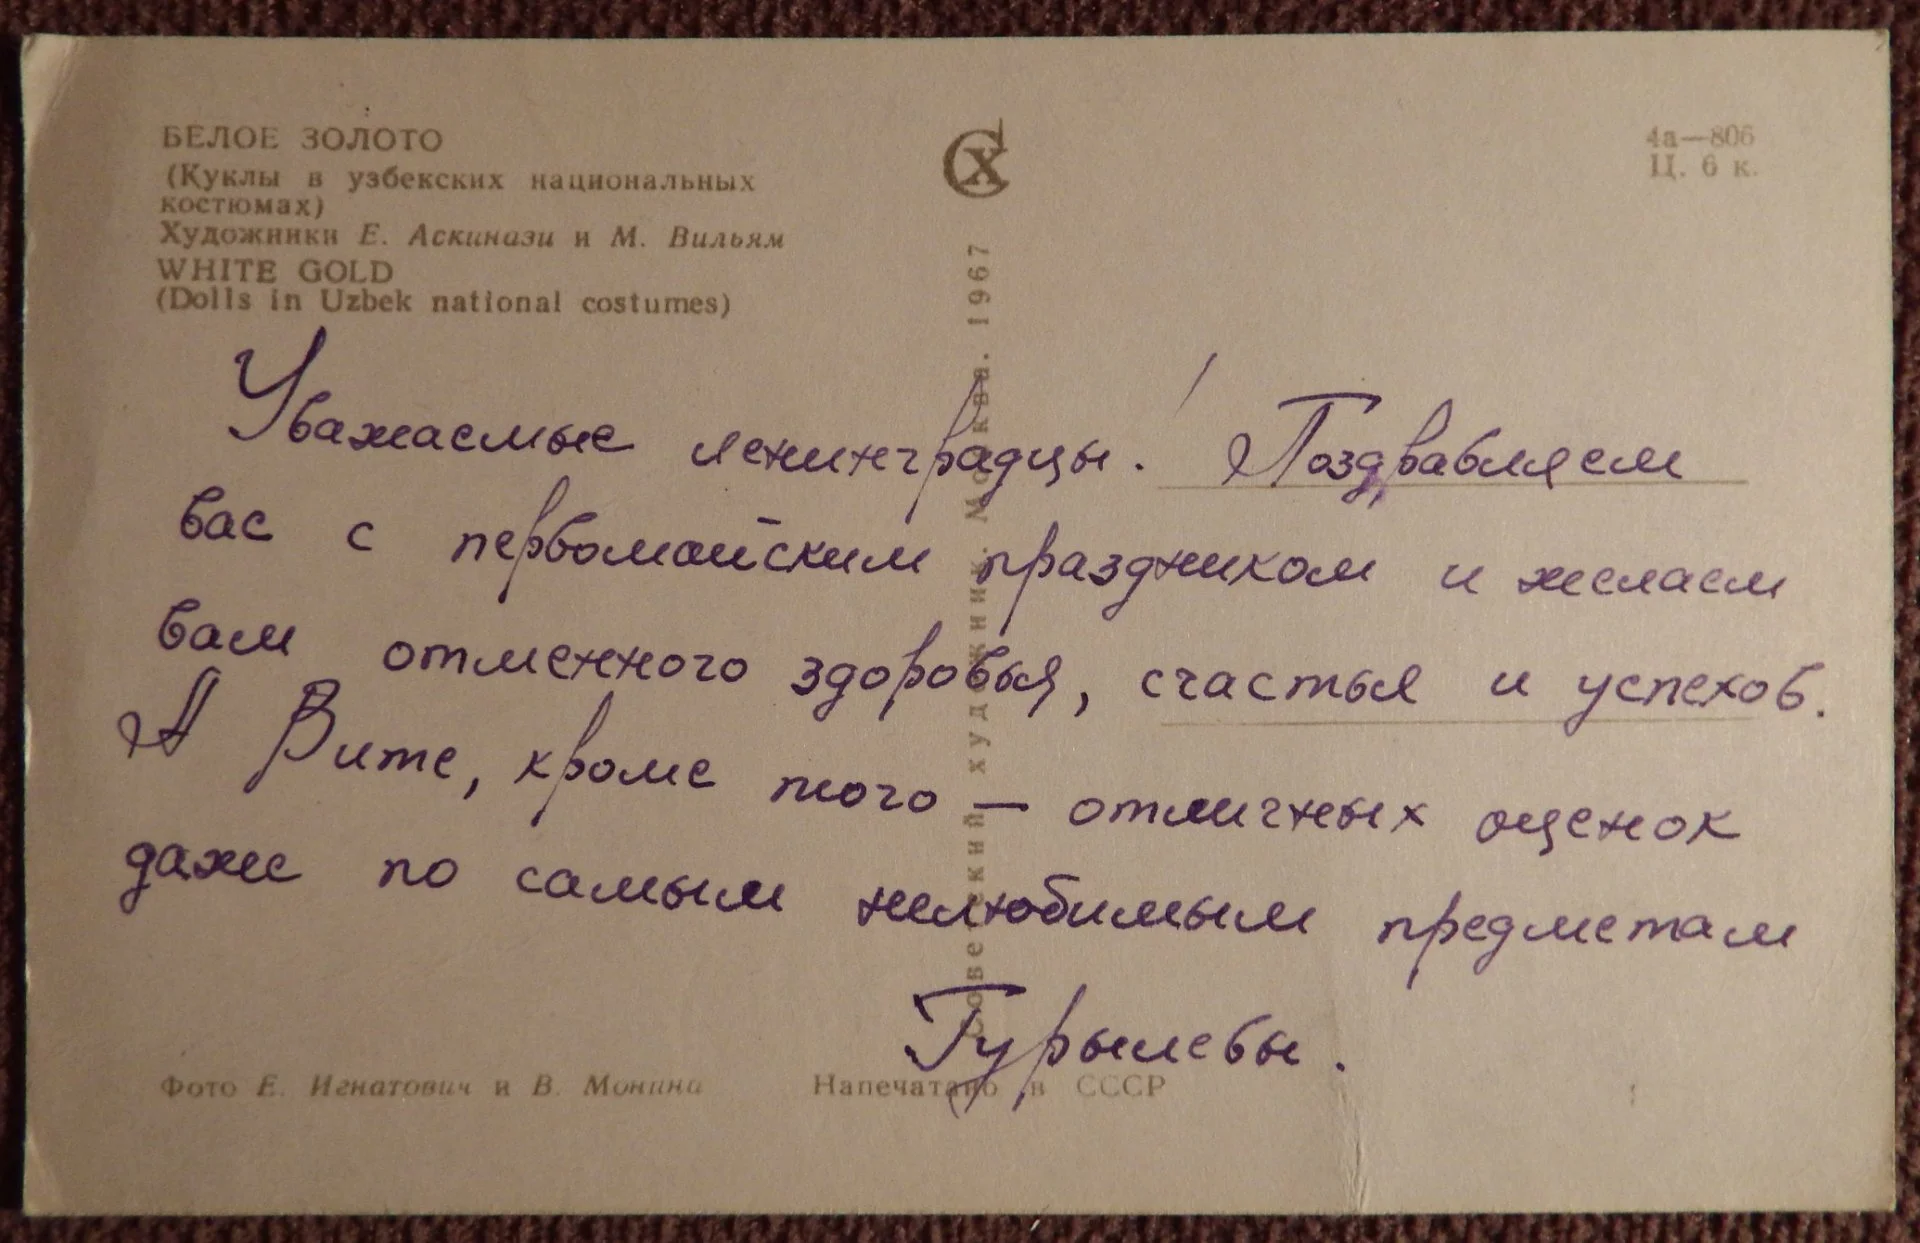 БЕЛОЕ ЗОЛОТО
(Куклы в узбекских национальных
костюмах)
Художники Е. Аскинази и М. Вильям
WHITE GOLD
(Dolls in Uzbek national costumes)
СХ
4а—806
Ц. 6 к.
Советский художник. Москва. 1967
Уважаемые ленинградцы! Поздравляем
вас с первомайским праздником и желаем
вам отменного здоровья, счастья и успехов.
А Вите, кроме того — отличных оценок
даже по самым нелюбимым предметам
Гурылевы.
Фото Е. Игнатович и В. Монина
Напечатано в СССР